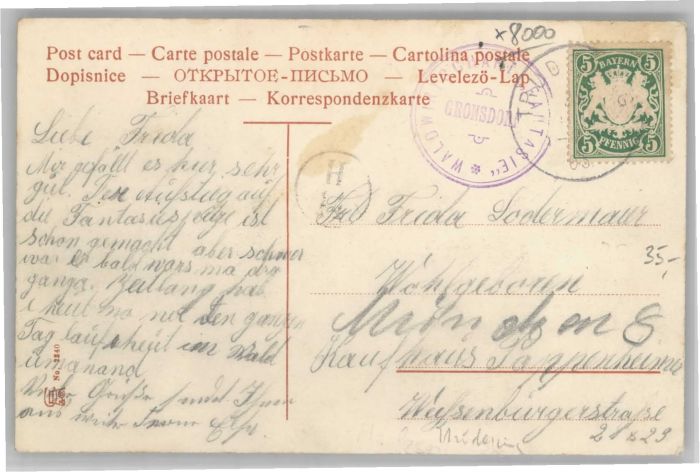 Post card — Carte postale — Postkarte — Cartolina postale
Dopisnice — ОТКРЫТОЕ-ПИСЬМО — Levelező-Lap
Briefkaart — Korrespondenzkarte
x 8000
5 5
BAYERN
5 PFENNIG 5
GRONSDORF
WALDWIRTSCHAFT "FANTASIE"
Liebe Frida
Mir gefällt es hier sehr
gut. Den Aufstieg auf
die Fantasius ist
schon gemacht aber schwer
war er bald wars ma
ganga. Zeitlang hab
i heut no net den ganzen
Tag lauf i heut im Wald
umanand
Viele Grüße sendet Ihnen
aus weiter Ferne
H
Frl Frida Lodermaier
35,-
Wohlgeboren
München 8
Kaufhaus Pappenheimer
Weißenburgerstraße
21 u 23
No. 2240